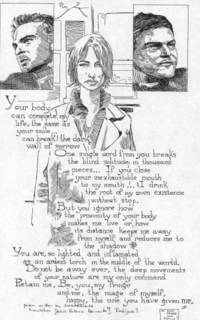 Your body
can complete my
life, the same as
your smile...
can break the dark
wall of sorrow
One single word from you breaks
the blind solitude in thousand
pieces... If you close
your inexhaustible mouth
to my mouth... I drink
the root of my own existence
without stop.
But you ignore how
the proximity of your body
makes me live or how
its distance keeps me away
from myself and reduces me to
the shadow
You are, so lighted and inflamated
as an ardent torch in the middle of the world.
Do not be away ever, the deep movements
of your nature are my only command.
Retain me. Be, you, my fringe
and me, the image of myself,
happy, the one you have given me.